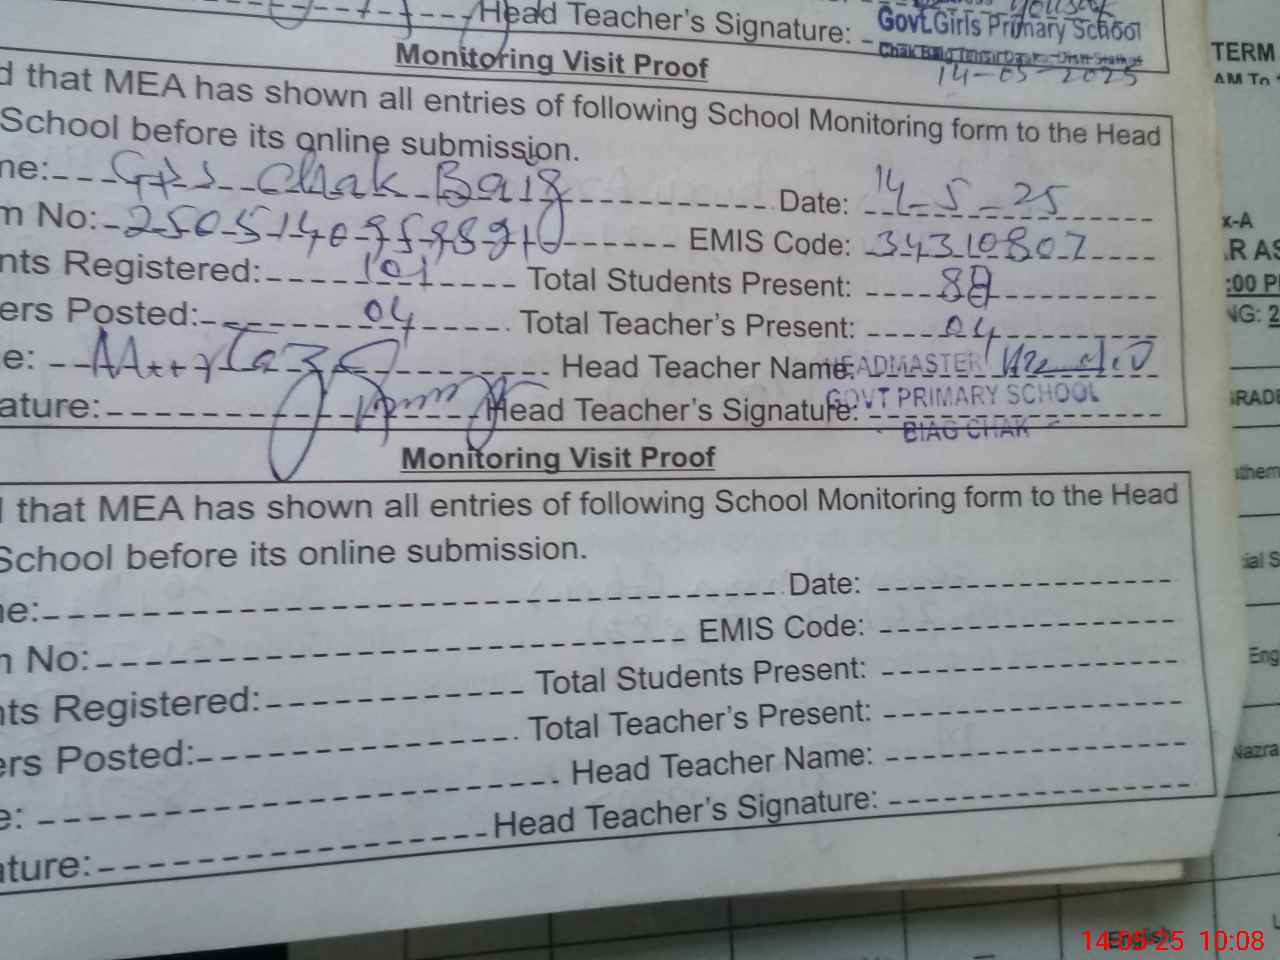 Head Teacher's Signature:
Govt.Girls Primary School
14-05-2025
Monitoring Visit Proof
d that MEA has shown all entries of following School Monitoring form to the Head
School before its online submission.
me: GPS Chak Baig Date: 14-5-25
m No: EMIS Code: 34310807
nts Registered: 101 Total Students Present: 88
ers Posted: 04 Total Teacher's Present: 04
e: Head Teacher Name: HEADMASTER
ature: Head Teacher's Signature: GOVT PRIMARY SCHOOL
BIAG CHAK
Monitoring Visit Proof
d that MEA has shown all entries of following School Monitoring form to the Head
School before its online submission.
ne: Date:
n No: EMIS Code:
nts Registered: Total Students Present:
ers Posted: Total Teacher's Present:
e: Head Teacher Name:
ature: Head Teacher's Signature:
TERM
AM To
x-A
:00 P
NG: 2
GRADE
them
ial S
Eng
Nazra
English
14-05-25 10:08